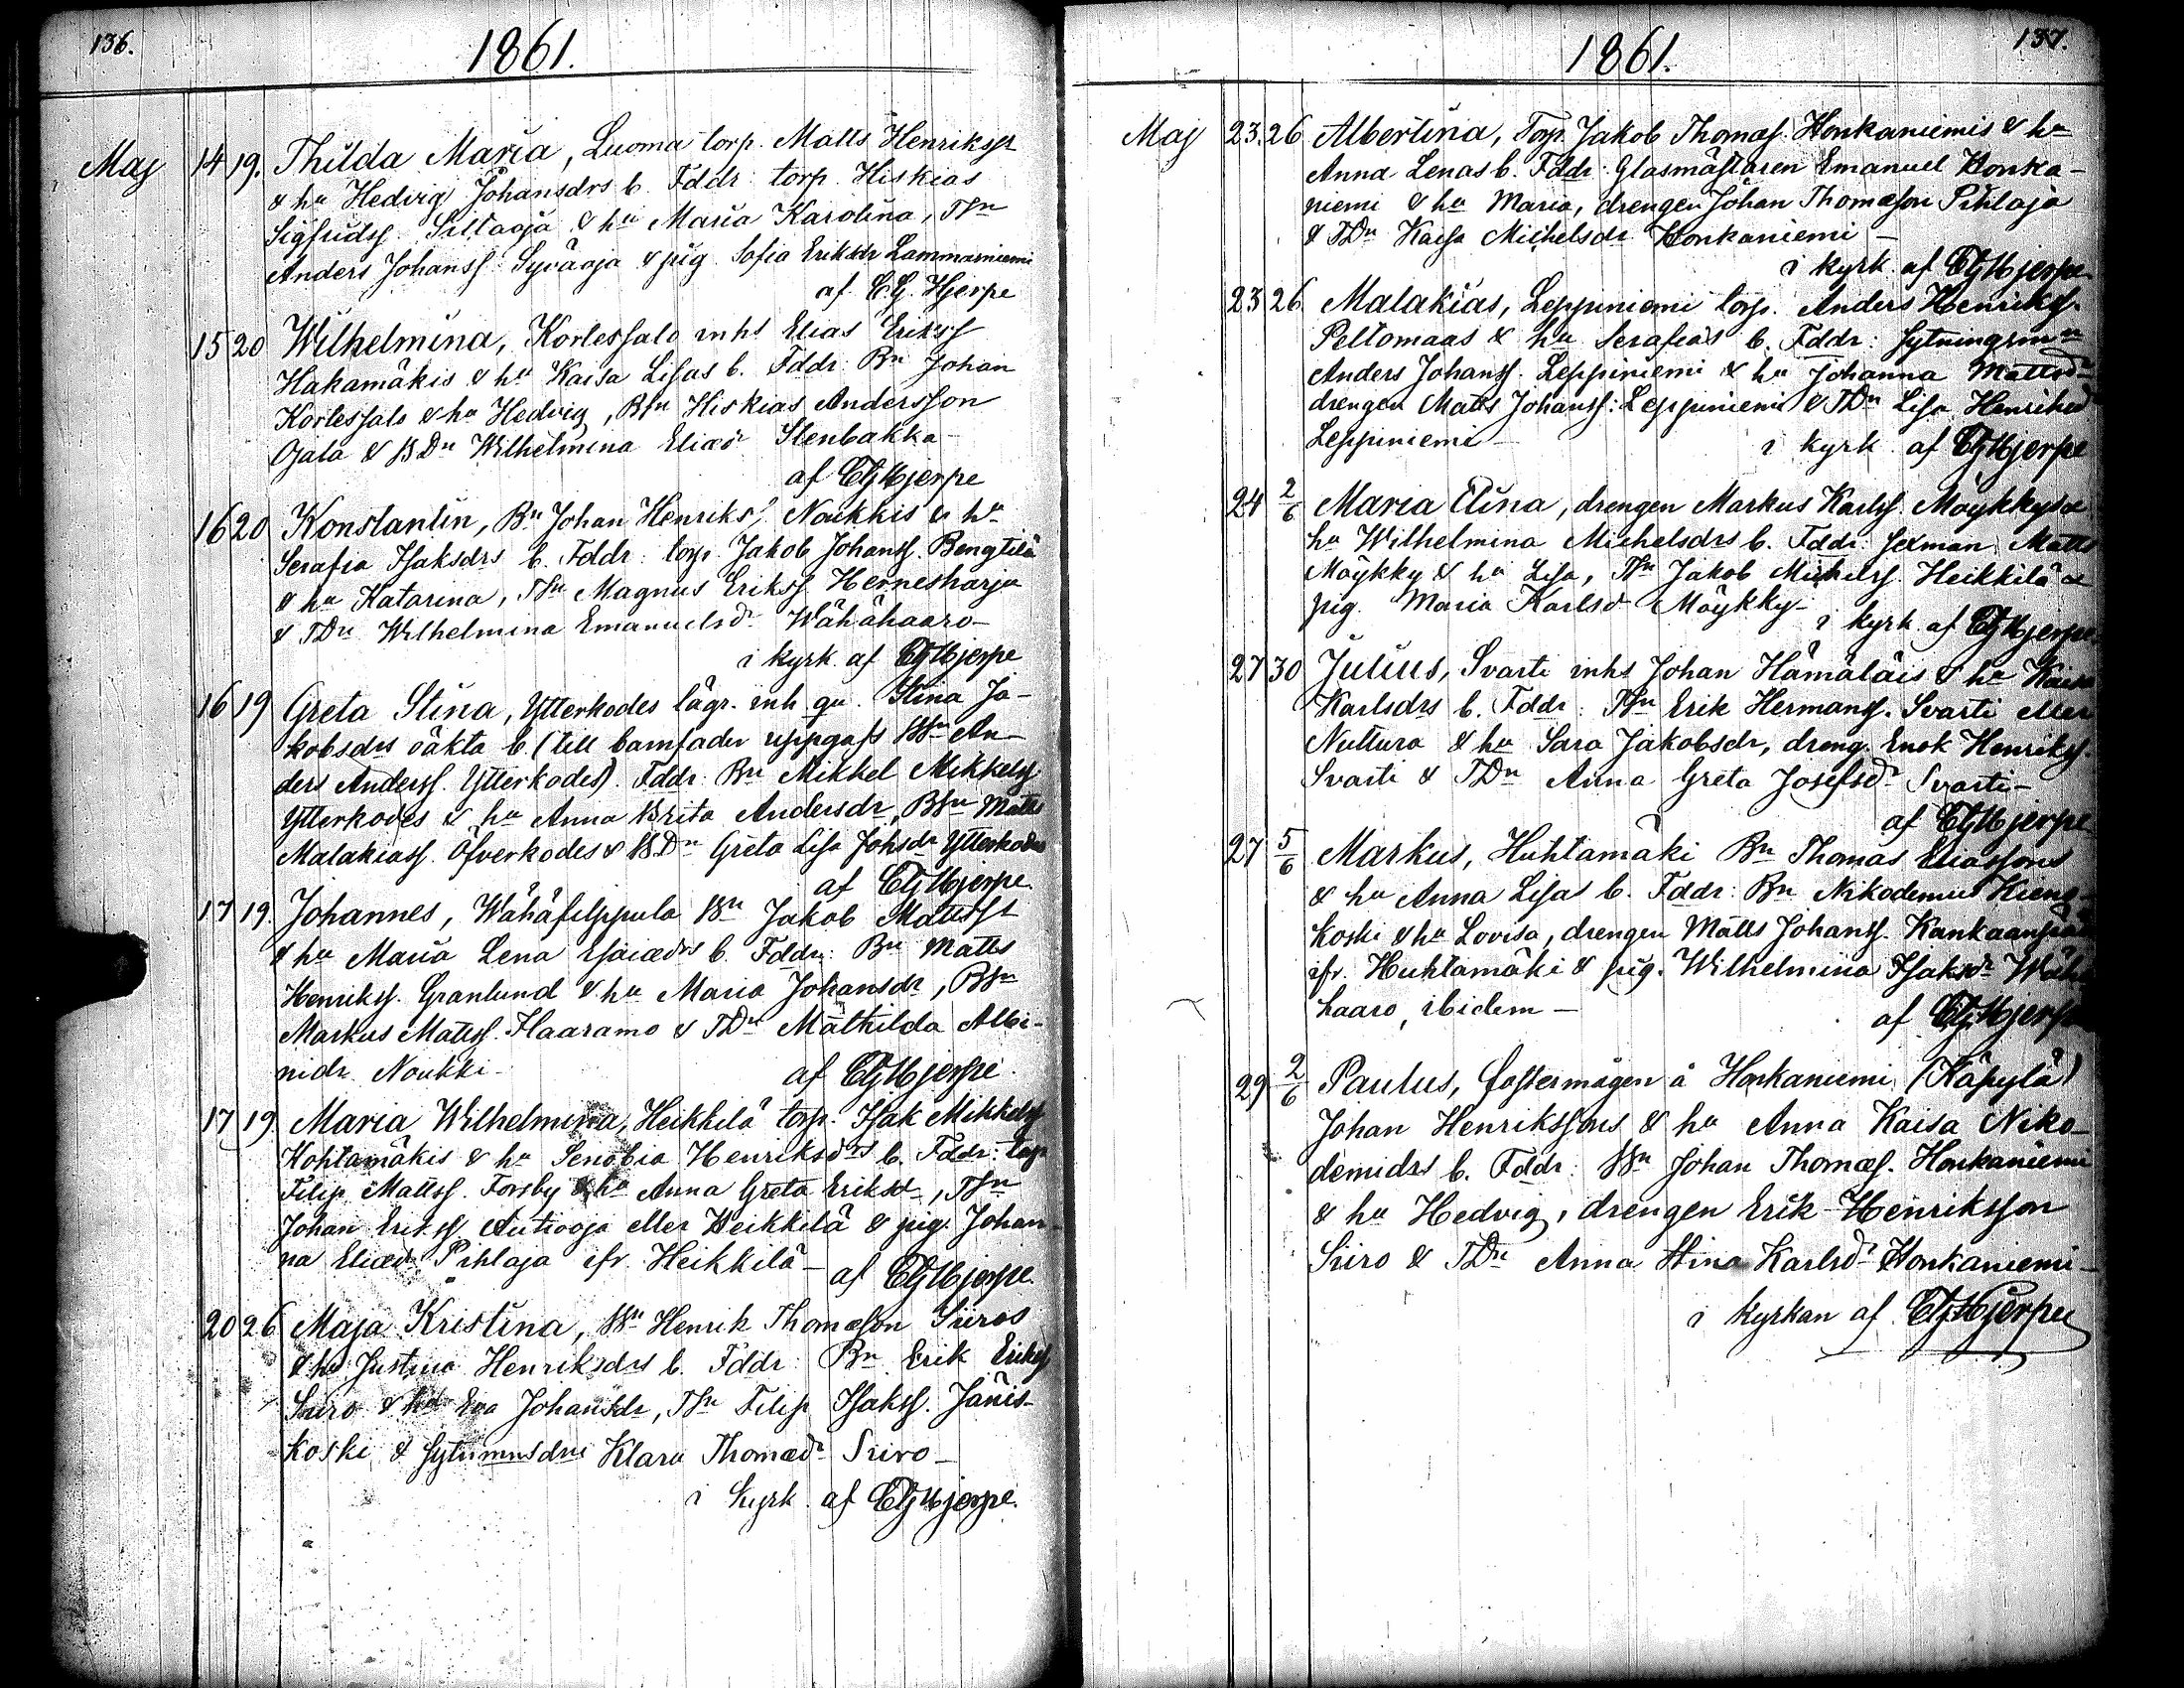 136.
1861.
Maj 14 19. Thilda Maria, Luoma torp. Matts Henrikss
& hu Hedvig Johansdrs b. Fddr: torp. Hiskias
Sigfridss. Siltaoja & hu Maria Karolina, TSn
Anders Johanss. Syväoja & pig. Sofia Eriksdr Lammasniemi
af C.G. Hjerpe
15 20 Wilhelmina, Kortessalo inhs Elias Erikss
Hakamäkis & hu Kaisa Lisas b. Fddr: Bn Johan
Kortessalo & hu Hedvig, BSn Hiskias Andersson
Ojala & BDn Wilhelmina Eliædr Stenbakka-
af CGHjerpe
16 20 Konstantin, Bn Johan Henriks, Noukkis & hu
Serafia Isaksdrs b. Fddr: torp. Jakob Johanss. Bengtilä
& hu Katarina, TSn Magnus Erikss Hernesharju
& TDn Wilhelmina Emanuelsdr Wähähaaro-
i kyrk. af CGHjerpe
16 19 Greta Stina, Ytterkodes lägr. inh. qu. Stina Ja-
kobsdrs oäkta b. (till barnfader uppgafs BSn An-
ders Anderss. Ytterkodes). Fddr: Bn Mikkel Mikkelss
Ytterkodes & hu Anna Brita Andersdr, BSn Matts
Malakiass. Öfverkodes & BDn Greta Lisa Johsdr Ytterkodes
af CGHjerpe.
17 19. Johannes, Wähäfilppula Bn Jakob Mattss
& hu Maria Lena Esaiædrs b. Fddr: Bn Matts
Henrikss. Granlund & hu Maria Johansdr, BSn
Markus Mattss. Haaramo & TDn Mathilda Albi-
nidr Noukki-
af CGHjerpe.
17 19 Maria Wilhelmina, Heikkilä torp. Isak Mikkelss
Hohtamäkis & hu Senobia Henriksdrs b. Fddr: torp
Filip Mattss. Forsby & hu Anna Greta Eriksd, TSn
Johan Erikss Autiooja eller Heikkilä & pig. Johan-
na Eliædr Pihlaja ifr. Heikkilä-
af CGHjerpe.
20 26 Maja Kristina, Bn Henrik Thomæson Siiros
& hu Justina Henriksdrs b. Fddr: Bn Erik Erikss
Siiro & hu Eva Johansdr, TSn Filip Isakss. Jänis-
koski & sytnmnsdrn Klara Thomædr Siiro-
i kyrk. af CGHjerpe.
137.
1861.
Maj 23. 26 Albertina, Torp. Jakob Thomæs. Honkaniemis & hu
Anna Lenas b. Fddr: Glasmästaren Emanuel Honka-
niemi & hu Maria, drengen Johan Thomæson Pihlaja
& TDn Kaisa Michelsdr Honkaniemi-
i kyrk. af CGHjerpe
23 26 Malakias, Leppiniemi torp. Anders Henrikss.
Peltomaas & hu Serafias b. Fddr: sytningsmn
Anders Johanss. Leppiniemi & hu Johanna Mattsdr
drengen Matts Johanss: Leppiniemi & TDn Lisa Henriksd
Leppiniemi-
i kyrk. af CGHjerpe
24 2/6 Maria Elina, drengen Markus Karlss. Möykkys &
hu Wilhelmina Michelsdrs b. Fddr: sexman Matts
Möykky & hu Lisa, TSn Jakob Michelss. Heikkilä &
pig. Maria Karlsd Möykky-
i kyrk. af CGHjerpe
27 30 Julius, Svarti inhs Johan Hämäläis & hu Kaisa
Karlsdrs b. Fddr: TSn Erik Hermanss. Svarti eller
Nuttura & hu Sara Jakobsdr, dreng. Enok Henrikss.
Svarti & TDn Anna Greta Josefsdr Svarti-
af CGHjerpe
27 5/6 Markus, Huhtamäki Bn Thomas Eliassons
& hu Anna Lisas b. Fddr: Bn Nikodemus Kieng-
koski & hu Lovisa, drengen Matts Johanss.
ifr. Huhtamäki & pig. Wilhelmina Isaksdr Wähä
haaro, ibidem-
af CGHjerpe
29 2/6 Paulus, fostermågen å Honkaniemi (Käpylä)
Johan Henrikssons & hu Anna Kaisa Niko-
demidrs b. Fddr: Bn Johan Thomæs. Honkaniemi
& hu Hedvig, drengen Erik Henriksson
Siiro & TDn Anna Stina Karlsdr Honkaniemi-
i kyrkan af CGHjerpe